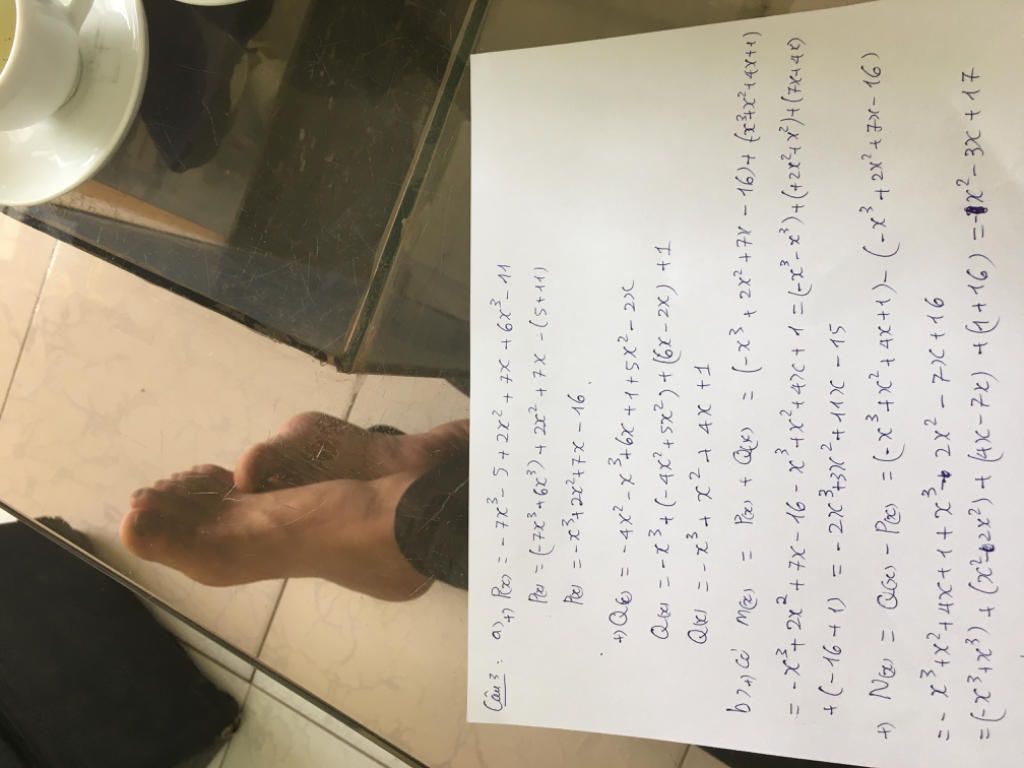 Câu 3: a)
+) P(x) = -7x³ - 5 + 2x² + 7x + 6x³ - 11
P(x) = (-7x³ + 6x³) + 2x² + 7x - (5 + 11)
P(x) = -x³ + 2x² + 7x - 16.
+) Q(x) = -4x² - x³ + 6x + 1 + 5x² - 2x
Q(x) = -x³ + (-4x² + 5x²) + (6x - 2x) + 1
Q(x) = -x³ + x² + 4x + 1
b) +) Có M(x) = P(x) + Q(x) = (-x³ + 2x² + 7x - 16) + (x³ + x² + 4x + 1)
= -x³ + 2x² + 7x - 16 - x³ + x² + 4x + 1 = (-x³ - x³) + (+2x² + x²) + (7x + 4x)
+ (-16 + 1) = -2x³ + 3x² + 11x - 15
+) N(x) = Q(x) - P(x) = (-x³ + x² + 4x + 1) - (-x³ + 2x² + 7x - 16)
= -x³ + x² + 4x + 1 + x³ - 2x² - 7x + 16
= (-x³ + x³) + (x² - 2x²) + (4x - 7x) + (1 + 16) = -x² - 3x + 17